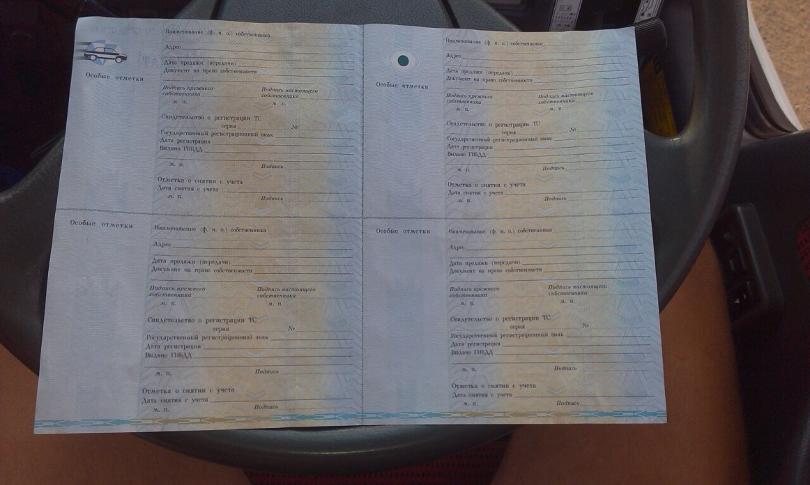 Наименование (ф. и. о.) собственника
Адрес
Дата продажи (передачи)
Документ на право собственности
Особые отметки
Подпись прежнего собственника
Подпись настоящего собственника
м. п.
м. п.
Свидетельство о регистрации ТС
серия №
Государственный регистрационный знак
Дата регистрации
Выдано ГИБДД
м. п.
Подпись
Отметка о снятии с учета
Дата снятия с учета
м. п.
Подпись
Наименование (ф. и. о.) собственника
Адрес
Дата продажи (передачи)
Документ на право собственности
Особые отметки
Подпись прежнего собственника
Подпись настоящего собственника
м. п.
м. п.
Свидетельство о регистрации ТС
серия №
Государственный регистрационный знак
Дата регистрации
Выдано ГИБДД
м. п.
Подпись
Отметка о снятии с учета
Дата снятия с учета
м. п.
Подпись
Особые отметки
Наименование (ф. и. о.) собственника
Адрес
Дата продажи (передачи)
Документ на право собственности
Подпись прежнего собственника
Подпись настоящего собственника
м. п.
м. п.
Свидетельство о регистрации ТС
серия №
Государственный регистрационный знак
Дата регистрации
Выдано ГИБДД
м. п.
Подпись
Отметка о снятии с учета
Дата снятия с учета
м. п.
Подпись
Особые отметки
Наименование (ф. и. о.) собственника
Адрес
Дата продажи (передачи)
Документ на право собственности
Подпись прежнего собственника
Подпись настоящего собственника
м. п.
м. п.
Свидетельство о регистрации ТС
серия №
Государственный регистрационный знак
Дата регистрации
Выдано ГИБДД
м. п.
Подпись
Отметка о снятии с учета
Дата снятия с учета
м. п.
Подпись